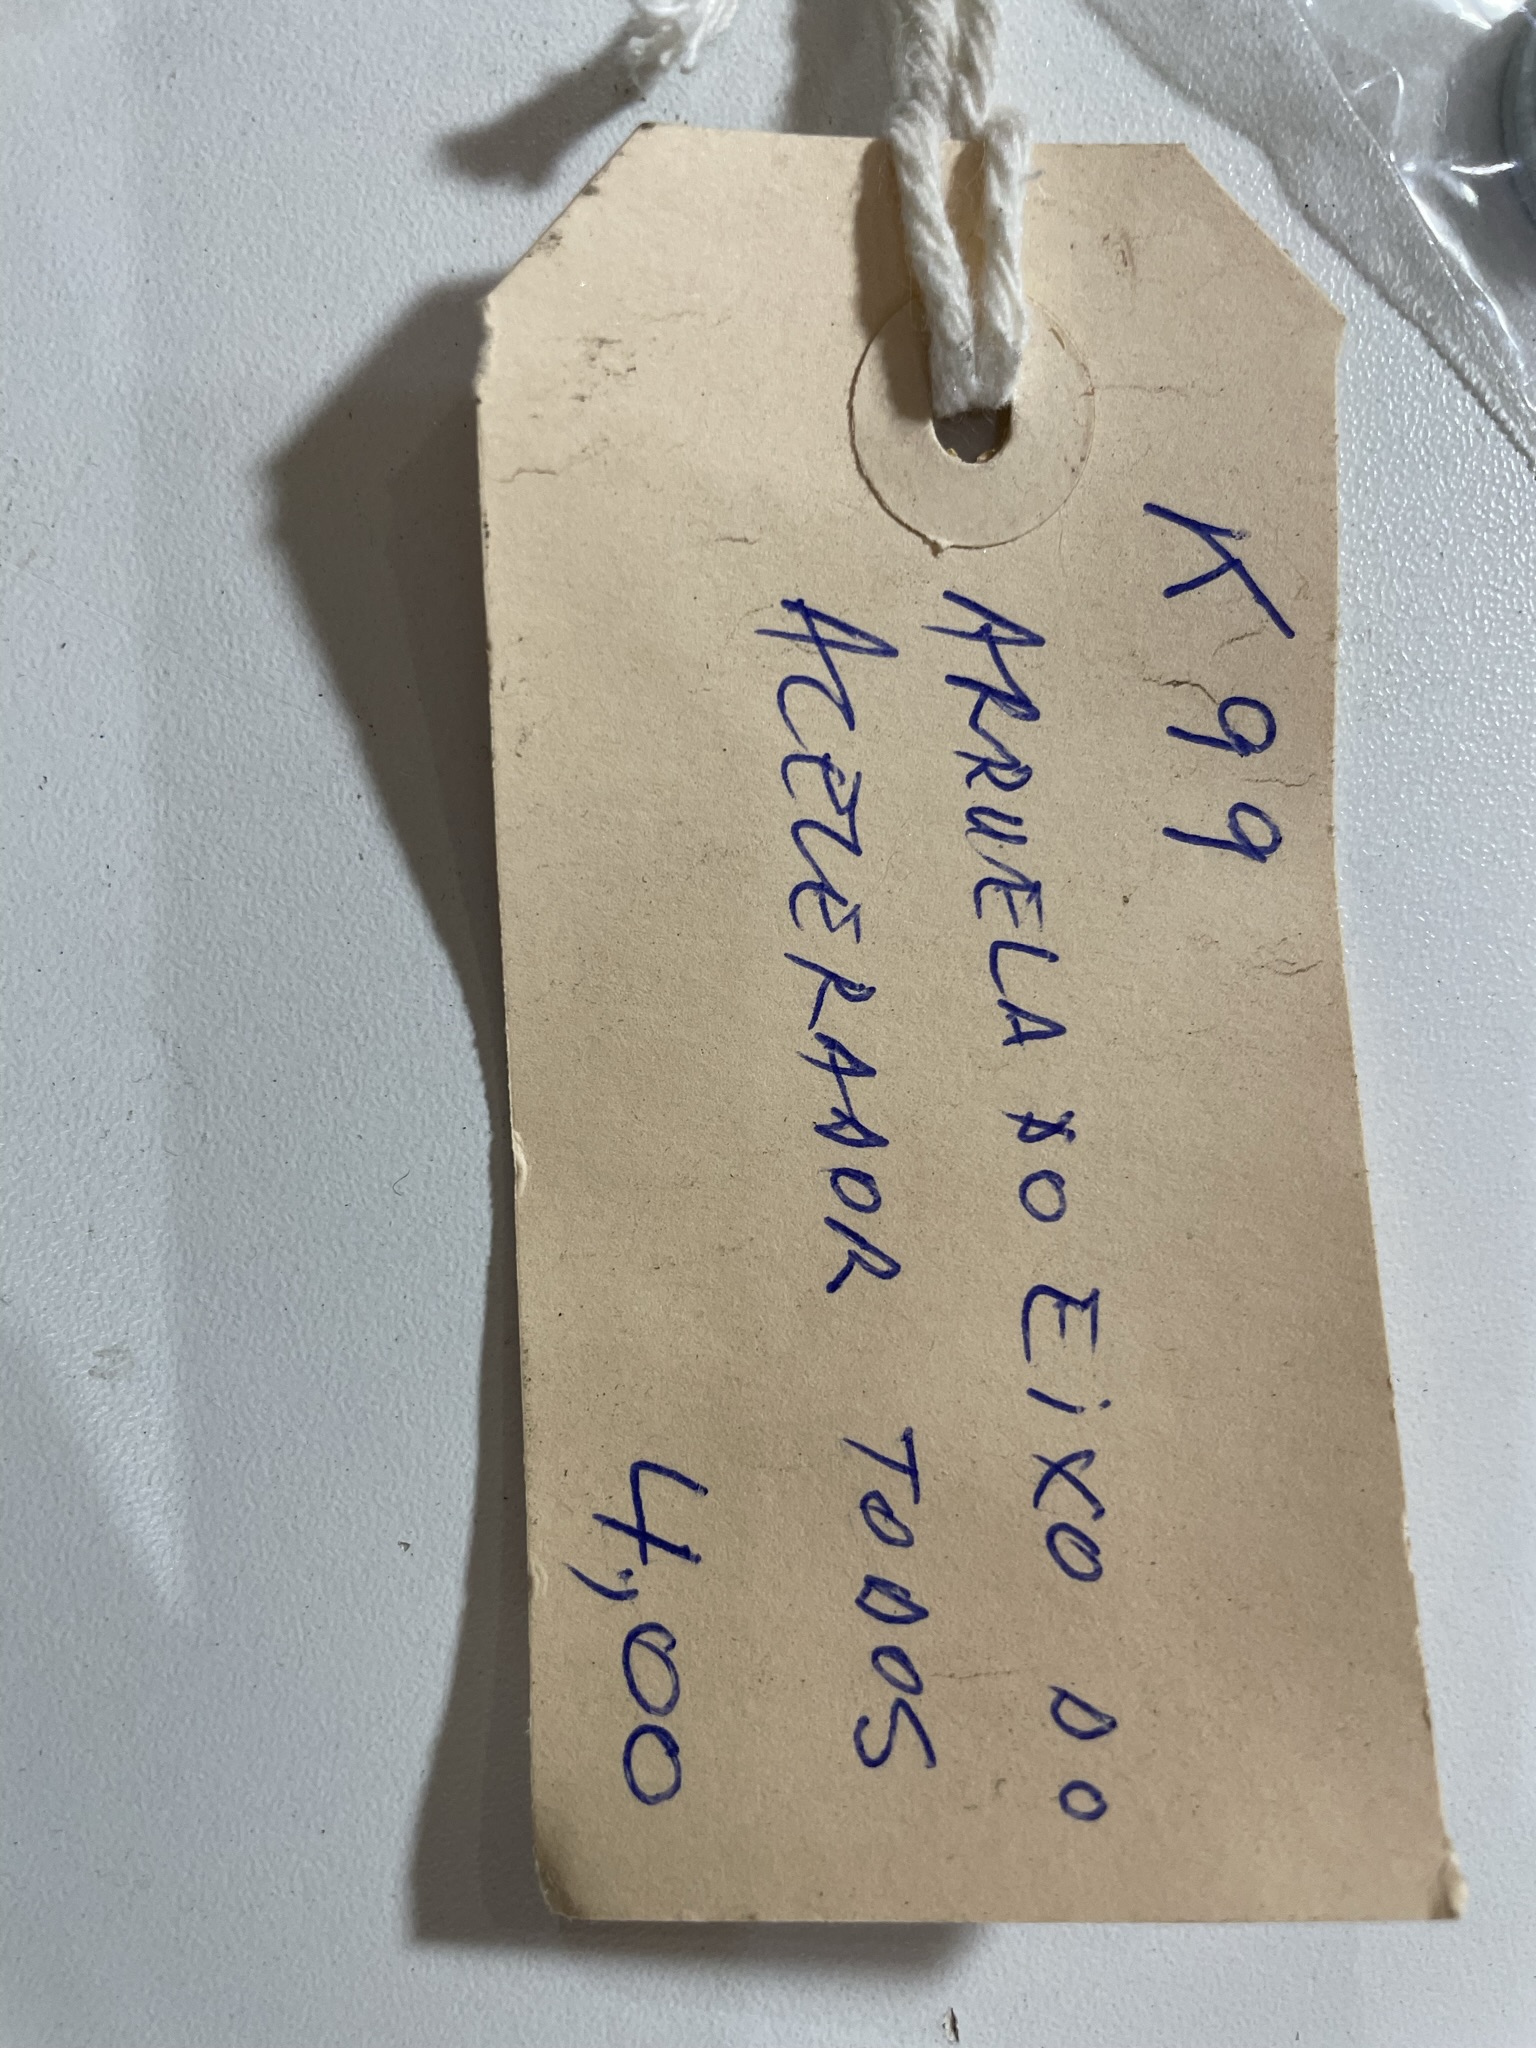 K 99
ARRUELA DO EiXO DO
ACELERADOR TODOS
4,00